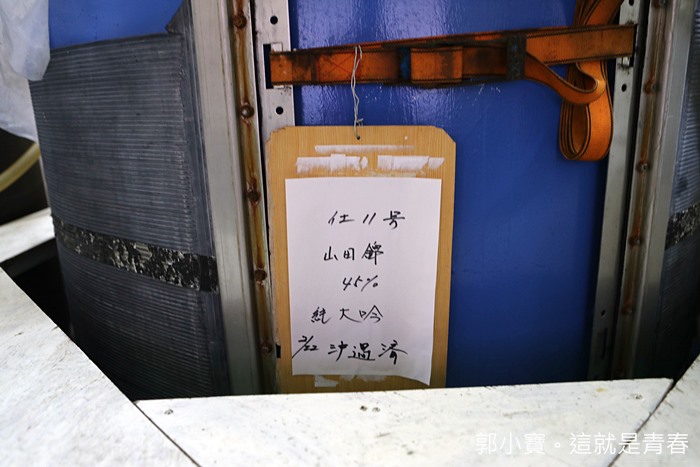 仕11号
山田錦
45%
純大吟
2/22 沪過済
郭小寶。這就是青春